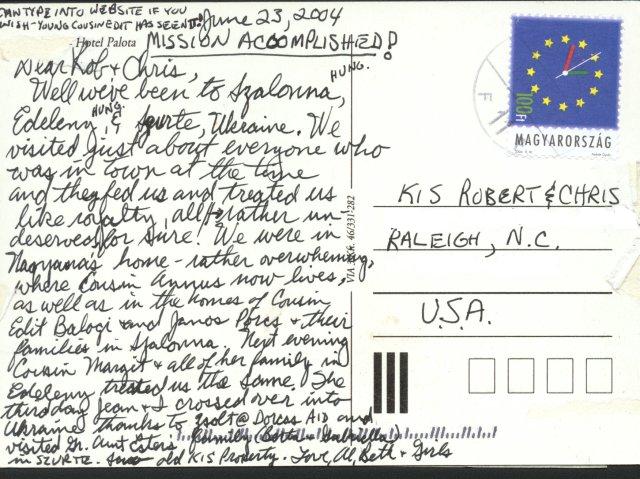 CAN TYPE INTO WEBSITE IF YOU
WISH - YOUNG COUSIN EDIT HAS SEEN IT.
June 23, 2004
- Hotel Palota
MISSION ACCOMPLISHED!
Dear Rob & Chris,
HUNG.
Well we've been to Szalonna,
HUNG.
Edeleny, & Szurte, Ukraine. We
visited just about everyone who
was in town at the time
and they fed us and treated us
like royalty, all rather un-
deserved for sure! We were in
Nagyana's home - rather overwhelming,
where Cousin Annus now lives,
as well as in the homes of Cousin
Edit Balogi and Janos Pocs & their
families in Szalonna. Next evening
Cousin Margit & all of her family in
Edeleny treated us the same. The
third day Jean & I crossed over into
Ukraine thanks to Zsolt @ Dorcas AID and
visited Gr. Aunt Esters family (Borta & Gabriella)
in SZURTE. old KIS Property. Love, Al, Beth & Girls
VIA 46331-282
F
100 Ft
MAGYARORSZÁG
KIS ROBERT & CHRIS
RALEIGH, N.C.
U.S.A.